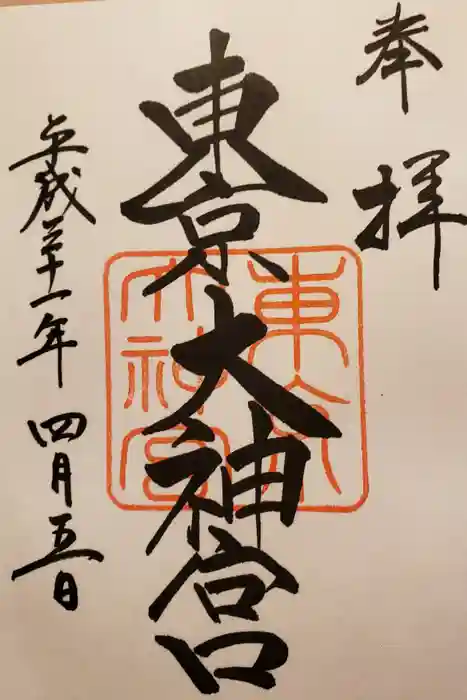 奉拝
東京大神宮
東京大神宮
平成三十一年四月五日